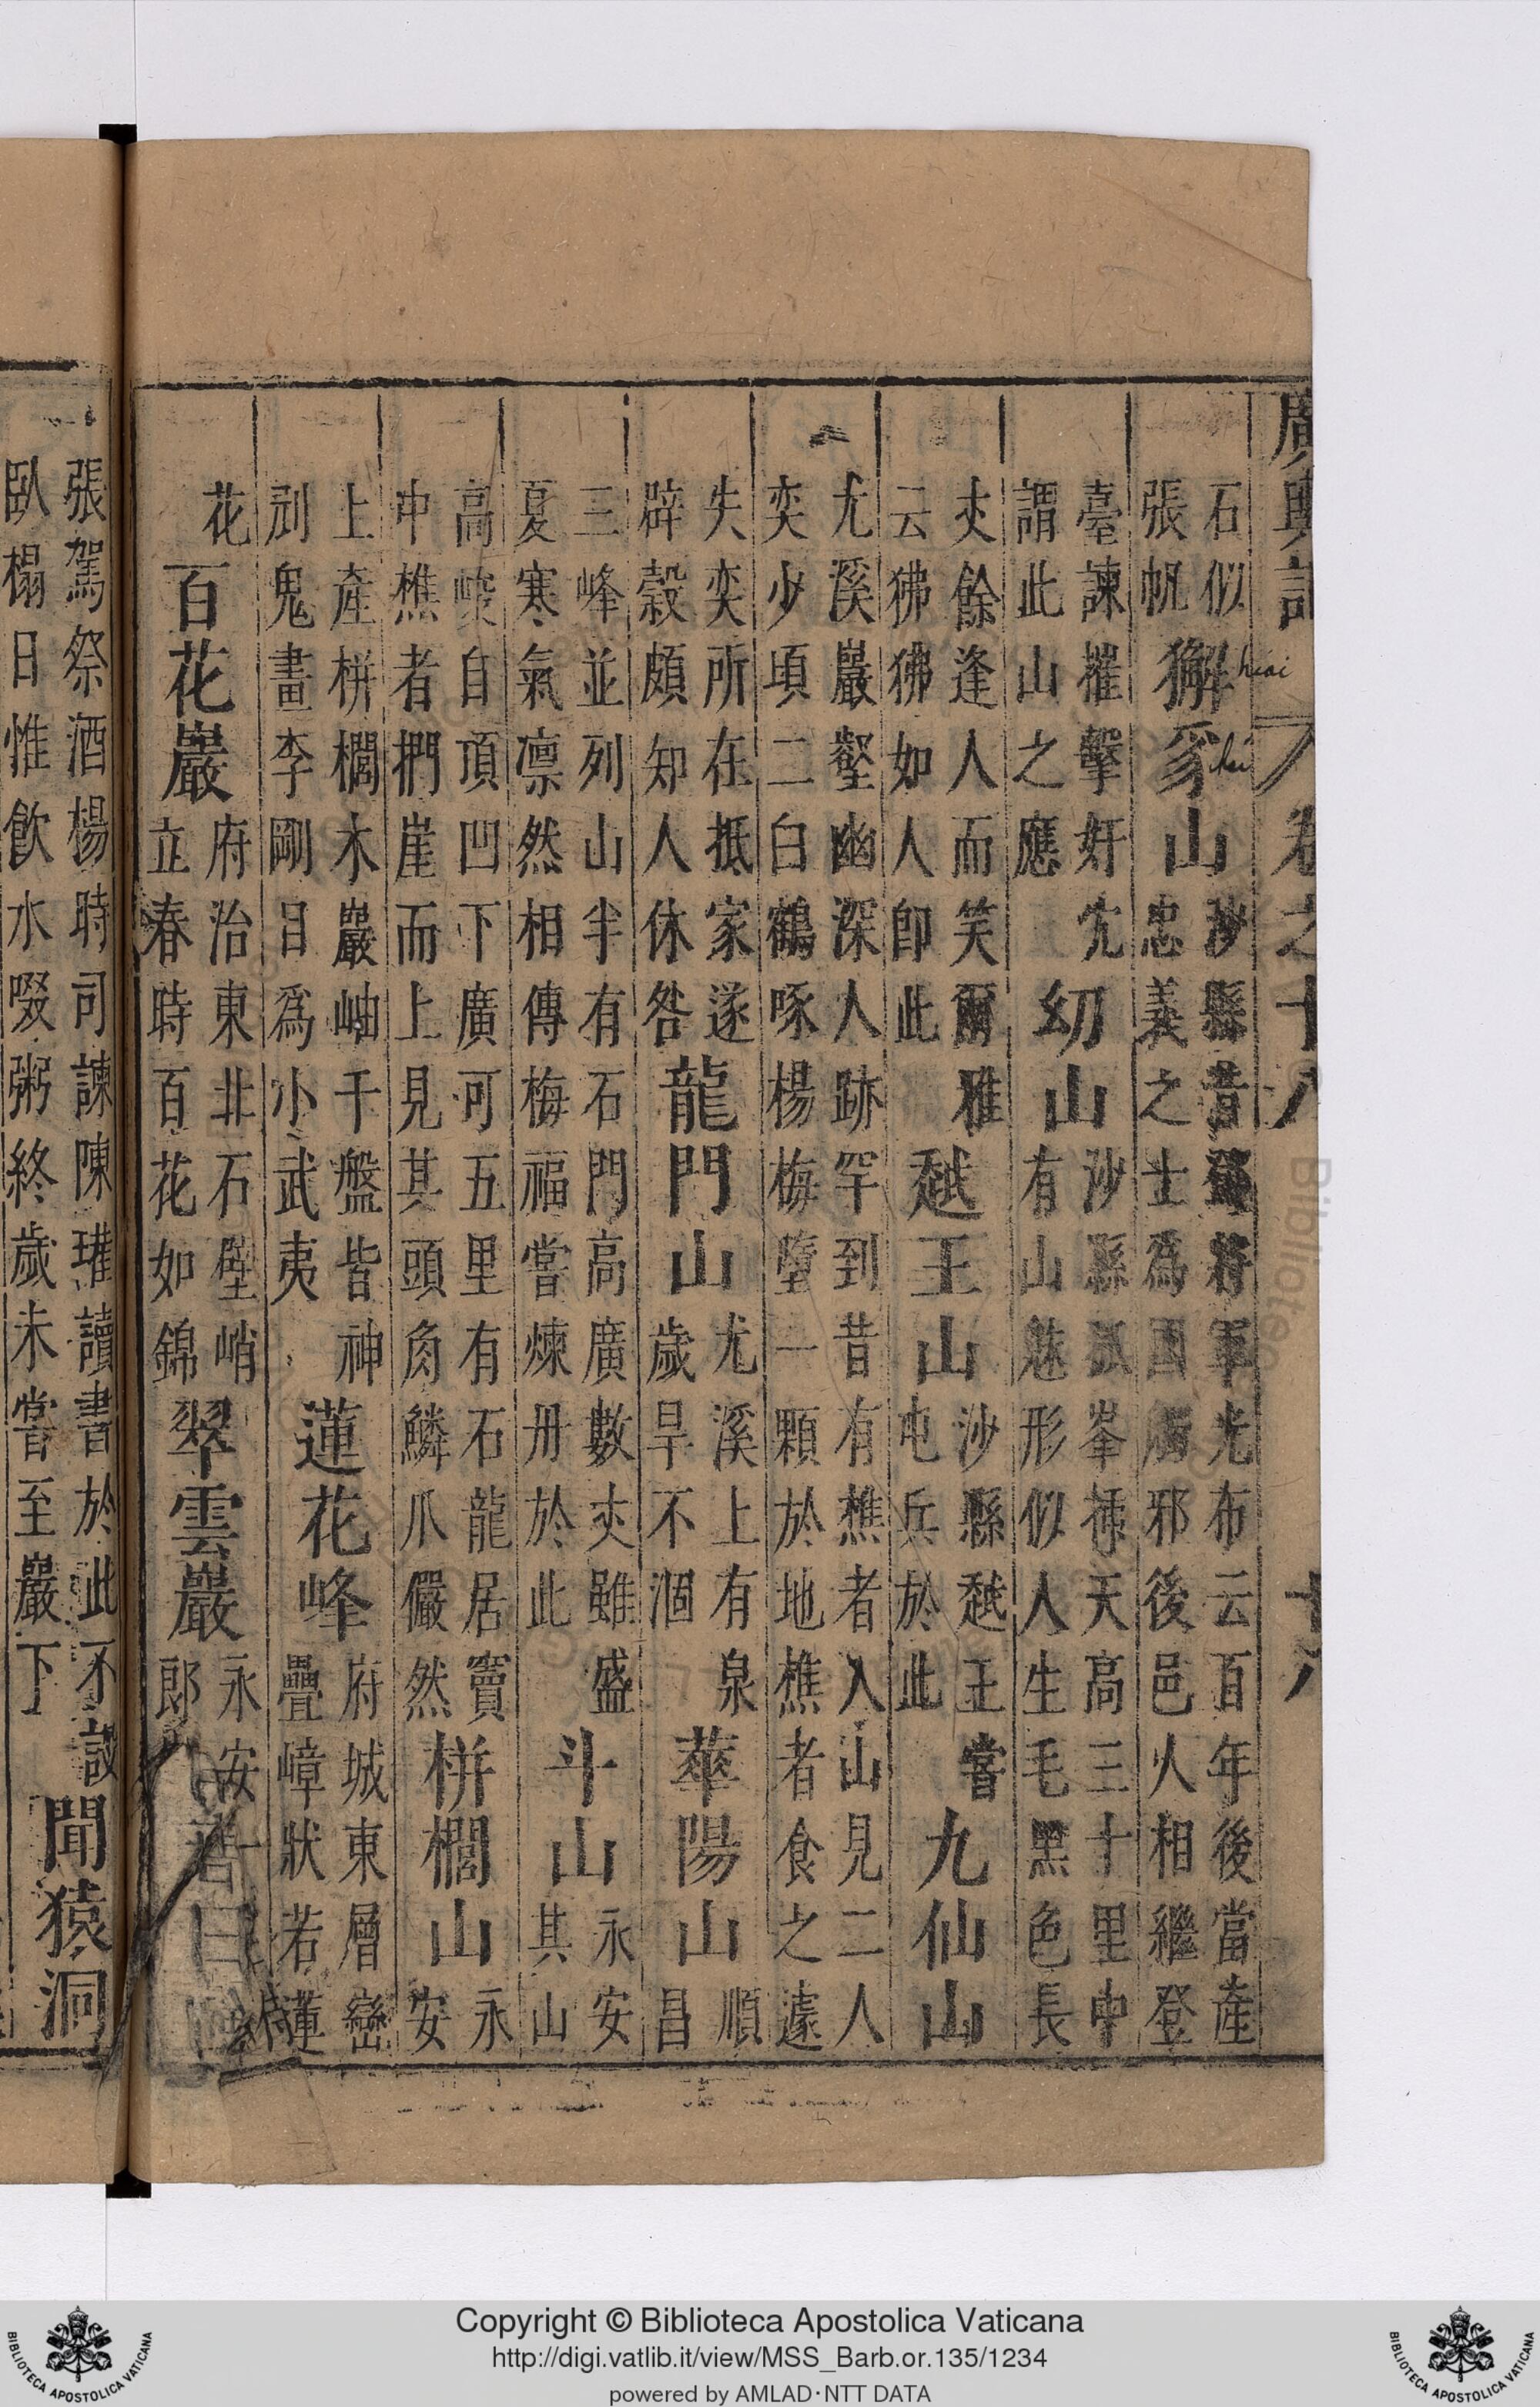 廣輿記 卷之十八 十八
石似
張帆
獬豸山
hiai
沙縣昔鄧將軍光布云百年後當產
忠義之士爲國觸邪後邑人相繼登
臺諫摧擊奸宄
謂此山之應
幼山
沙縣孤峯揷天高三十里中
有山魅形似人生毛黑色長
丈餘逢人而笑爾雅
云狒狒如人即此
越王山
沙縣越王嘗
屯兵於此
九仙山
尤溪巖壑幽深人跡罕到昔有樵者入山見二人
奕少頃二白鶴啄楊梅墮一顆於地樵者食之遽
失奕所在抵家遂
辟穀頗知人休咎
龍門山
尤溪上有泉
歲旱不涸
華陽山
順
昌
三峰並列山半有石門高廣數丈雖盛
夏寒氣凛然相傳梅福嘗煉丹於此
斗山
永安
其山
高峻自頂凹下廣可五里有石龍居竇
中樵者捫崖而上見其頭角鱗爪儼然
栟櫚山
永
安
上產栟櫚木巖岫千盤皆神
剜鬼畫李剛目爲小武夷
蓮花峰
府城東層巒
疊嶂狀若蓮
花
百花巖
府治東北石壁峭
立春時百花如錦
翠雲巖
永安
郎
張駕祭酒楊時司諫陳瓘讀書於此不設
臥榻日惟飲水啜粥終歲未嘗至巖下
聞猿洞
Copyright © Biblioteca Apostolica Vaticana
http://digi.vatlib.it/view/MSS_Barb.or.135/1234
powered by AMLAD·NTT DATA
BIBLIOTECA APOSTOLICA VATICANA
BIBLIOTECA APOSTOLICA VATICANA